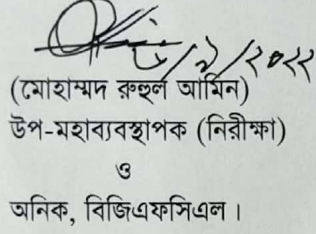 ৬/৯/২০২২
(মোহাম্মদ রুহুল আমিন)
উপ-মহাব্যবস্থাপক (নিরীক্ষা)
ও
অনিক, বিজিএফসিএল।